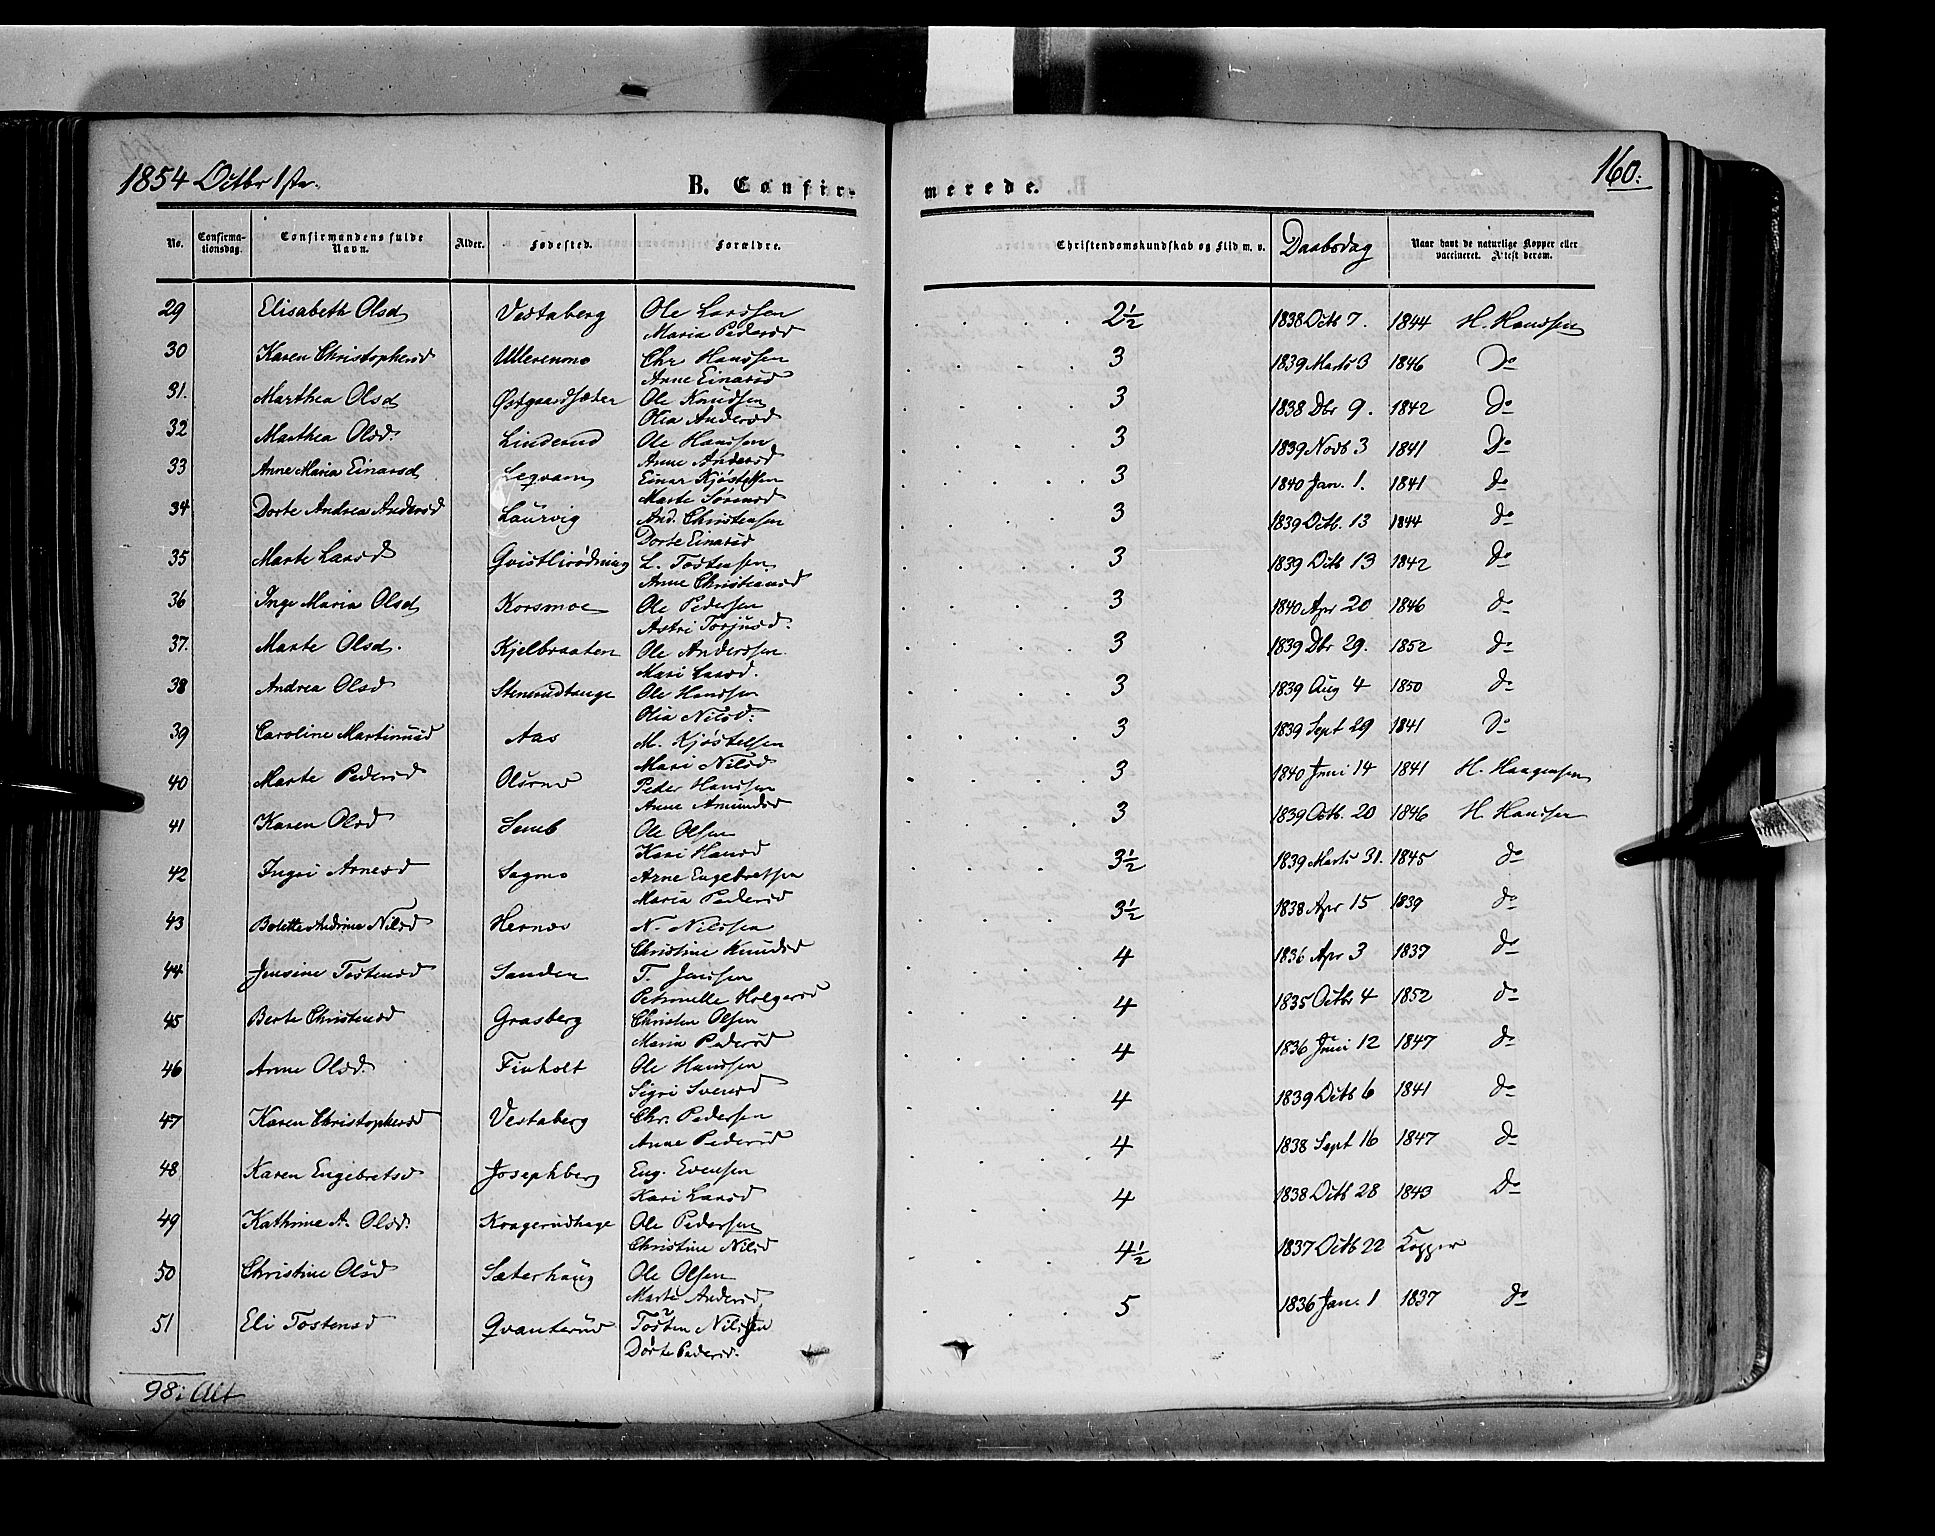 1854 Octbr 1ste.
B. Confir-
merede.
160.
No.
Confirma-
tionsdag.
Confirmandens fulde
Navn.
Alder.
Fødested.
Forældre.
Christendomskundskab og Flid m. v.
Daabsdag
Naar havt de naturlige Kopper eller
vaccineret. Attest derom.
29 Elisabeth Olsd Vestaberg Ole Larssen 2½ 1838 Octb 7. 1844 H. Hanssen
Maria Pedersd
30 Karen Christophersd Ullerenmo Chr Hanssen 3 1839 Marts 3 1846 Do
Anne Einarsd
31. Marthea Olsd Østgaardsæter Ole Knudsen 3 1838 Dbr 9. 1842 Do
Olia Andersd
32 Marthea Olsd. Linderud Ole Hanssen 3 1839 Novb 3 1841 Do
Anne Andersd
33 Anne Maria Einarsd Leqvam Einar Kjøstelsen 3 1840 Jan. 1. 1841 do
Marte Sørensd
34 Dorte Andrea Andersd Laurvig And. Christensen 3 1839 Octb. 13 1844 do
Dorte Einarsd
35 Marte Larsd Gvistlirødning L. Tostensen 3 1839 Octb 13 1842 do
Anne Christiansd
36 Inge Maria Olsd Korsmoe Ole Pedersen 3 1840 Apr 20 1846 do
Astri Torjusd.
37. Marte Olsd. Kjelbraaten Ole Anderssen. 3 1839 Dbr 29. 1852 do
Mari Larsd.
38 Andrea Olsd Stenerudhauge Ole Hanssen 3 1839 Aug 4 1850 do
Olia Nilsd.
39 Caroline Martinusd Aas M. Kjøstelsen 3 1839 Sept 29 1841 Do
Mari Nilsd
40 Marte Pedersd Olsrud Peder Hanssen 3 1840 Juni 14 1841 H. Haagensen
Anne Amundsd
41 Karen Olsd Semb Ole Olsen 3 1839 Octb. 20 1846 H. Hanssen
Kari Hansd
42 Ingri Arnesd Sagmo Arne Engebretsen 3½ 1839 Marts 31. 1845 do
Maria Pedersd
43 Bolette Andrine Nilsd Hernes N. Nilssen 3½ 1838 Apr 15 1839 do
Christine Knudsd
44 Jensine Tostensd Sanden T. Jenssen 4 1836 Apr 3 1837 do
Petronelle Holgersd
45 Berte Christensd Grasberg Christen Olsen 4 1835 Octbr 4 1852 do
Maria Pedersd
46 Anne Olsd. Finholt Ole Hanssen 4 1836 Juni 12 1847 do
Sigri Svensd
47 Karen Christophersd Vestaberg Chr. Pedersen 4 1839 Octb 6 1841 do
Anne Pedersd
48 Karen Engebretsd Josephberg Eng. Evensen 4 1838 Sept 16 1847 do
Kari Larsd
49 Kathrine A. Olsd. Kragerudhage Ole Pedersen 4 1838 Octb 28 1843 Do
Christine Nilsd
50 Christine Olsd Sæterhaug Ole Olsen 4½ 1837 Octb 22 Kopper
Marte Andersd
51 Eli Tostensd Qvanterud Tosten Nilssen 5 1836 Jan. 1 1837 do
Dorte Pedersd.
98 i Alt